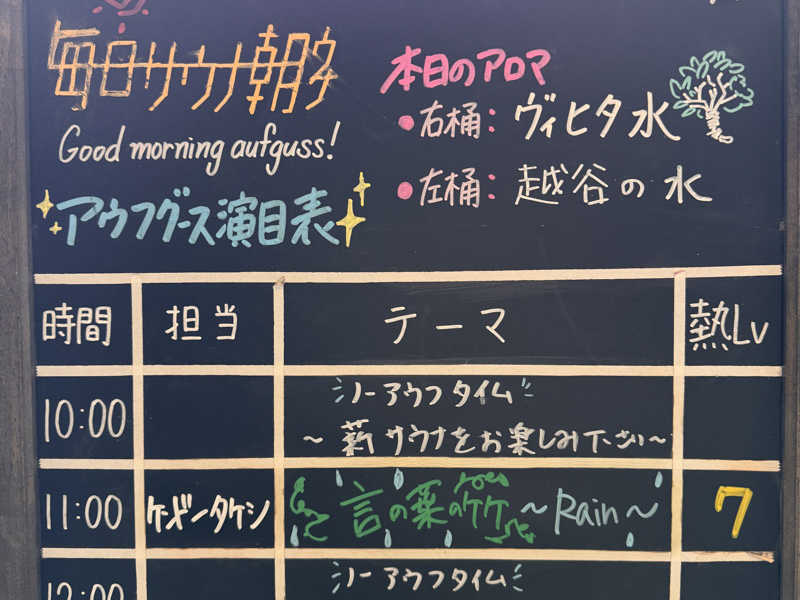 毎日サウナ朝夕
Good morning aufguss!
アウフグース演目表
本日のアロマ
●右桶：ヴィヒタ水
●左桶：越谷の水
時間 担当 テーマ 熱Lv
10:00 ノーアウフタイム
～薪サウナをお楽しみ下さい～
11:00 ケビンタケシ 言の葉のケケ ～Rain～ 7
12:00 ノーアウフタイム